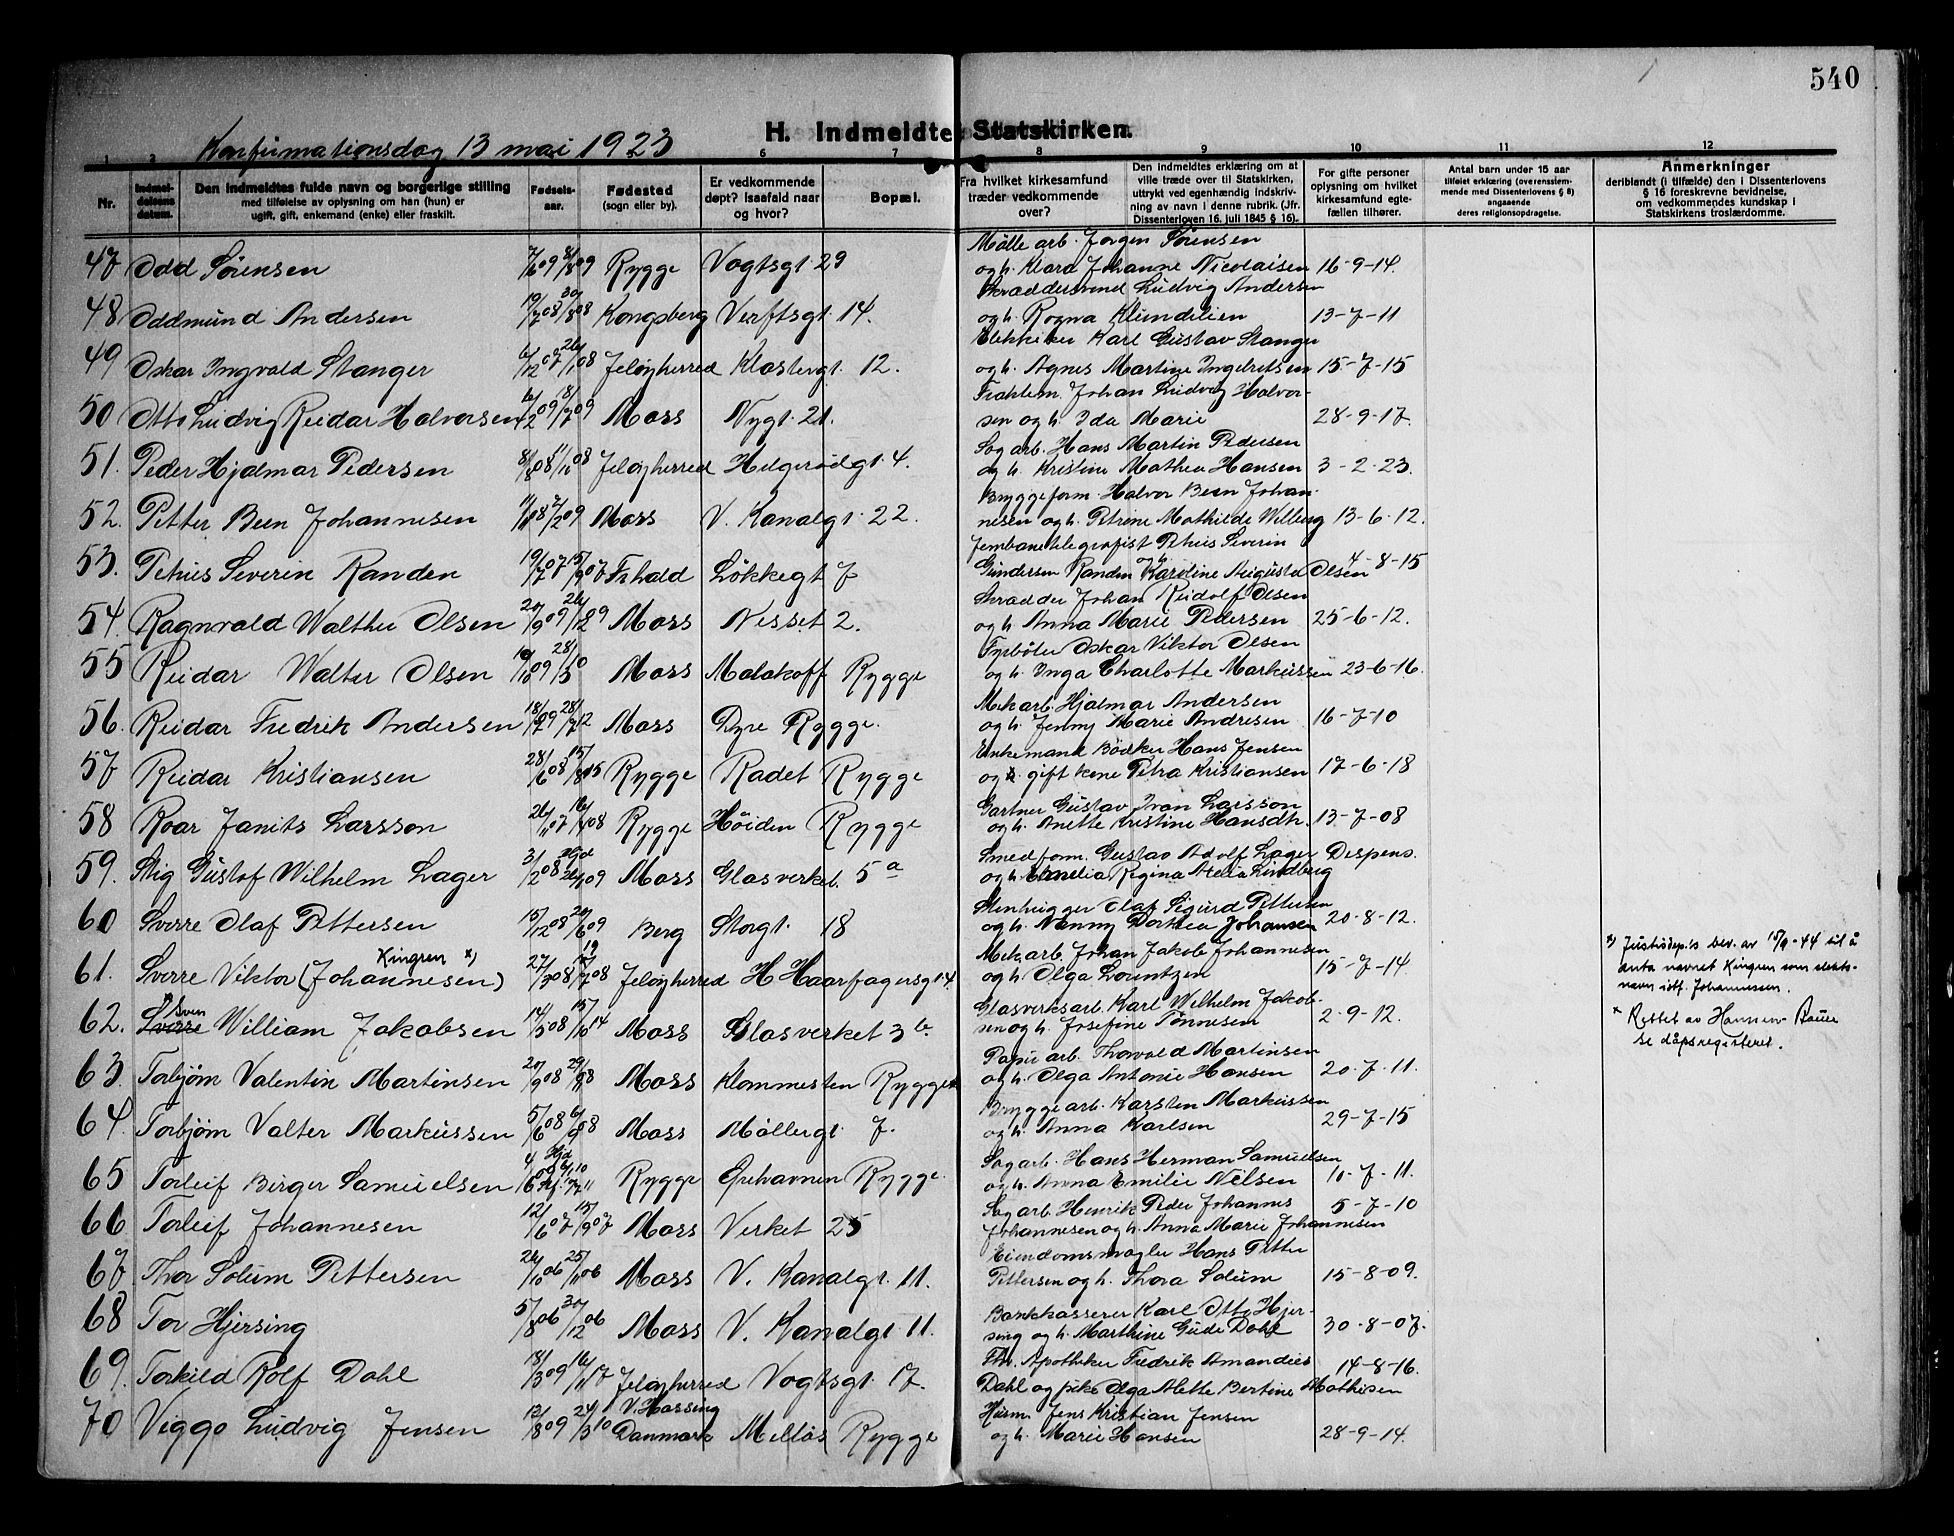 540
Konfirmationsdag 13 mai 1923
H. Indmeldte i Statskirken.
1 2 6 7 8 9 10 11 12
Nr.
Indmeldelsens datum.
Den indmeldtes fulde navn og borgerlige stilling
med tilføielse av oplysning om han (hun) er
ugift, gift, enkemand (enke) eller fraskilt.
Fødsels-
aar.
Fødested
(sogn eller by).
Er vedkommende
døpt? Isaafald naar
og hvor?
Bopæl.
Fra hvilket kirkesamfund
træder vedkommende
over?
Den indmeldtes erklæring om at
ville træde over til Statskirken,
uttrykt ved egenhændig indskriv-
ning av navn i denne rubrik. (Jfr.
Dissenterloven 16. juli 1845 § 16).
For gifte personer
oplysning om hvilket
kirkesamfund egte-
fællen tilhører.
Antal barn under 15 aar
tilføiet erklæring (overensstem-
mende med Dissenterlovens § 8)
angaaende
deres religionsopdragelse.
Anmerkninger
deriblandt (i tilfælde) den i Dissenterlovens
§ 16 foreskrevne bevidnelse,
om vedkommendes kundskap i
Statskirkens troslærdomme.
Mølle arb. Jørgen Sørensen
47 Odd Sørensen 7/6 09 8/8 09 Rygge Vogtsgt. 29 og h. Klara Johanne Nicolaisen 16-9-14.
Skræddersvend Ludvig Andersen
48 Oddmund Andersen 19/7 08 30/8 08 Kongsberg Verftsgt. 14. og h. Rogna Klundelien 13-7-11
Karl Gustav Stanger
49 Oskar Ingvald Stanger 6/12 07 26/1 08 Jeløyherred Klostergt. 12. og h. Agnes Martine Ingebretsen 15-7-15
Johan Ludvig Halvor-
50 Otto Ludvig Reidar Halvorsen 6/2 09 8/7 09 Moss Nygt. 21. sen og h. Ida Marie 28-9-17.
Sag arb. Hans Martin Pedersen
51. Peder Hjalmar Pedersen 8/8 08 1/11 08 Jeløyherred Helgerødgt. 4. og h. Kristine Mathea Hansen 3-2-23.
Bryggeform. Halvor Been Johan-
52. Petter Been Johannesen 11/11 08 7/2 09 Moss V. Kanalgt. 22. nesen og h. Petrine Mathilde Willung 13-6-12.
Jernbanetelegrafist Petrus Severin
53. Petrus Severin Randen 19/7 07 15/9 07 Frhald Løkkegt 7 Gundersen Randen og h. Karoline Augusta Olsen 4-8-15
Skrædder Johan Rudolf Olsen
54. Ragnvald Walther Olsen 20/9 09 26/12 09 Moss Nesset 2. og h. Anna Marie Pedersen 25-6-12.
Fyrbøter Oskar Viktor Olsen
55 Reidar Walter Olsen 19/10 09 28/3 10 Moss Malakoff Rygge og h. Inga Charlotte Markussen 23-6-16.
Mek arb. Hjalmar Andersen
56. Reidar Fredrik Andersen 28/7 12 Moss Dyre Rygge. og h. Jenny Marie Andresen 16-7-10
Enkemand Bødker Hans Jensen
57 Reidar Kristiansen 28/6 08 15/8 15 Rygge Radet Rygge og gift kone Petra Kristiansen 17-6-18
Gartner Gustav Ivan Larsson
58 Roar Janits Larsson 26/11 07 16/4 08 Rygge Høiden Rygge og h. Anette Kristine Hansdtr. 13-7-08
Smed form. Gustav Adolf Lager Despens.
59. Stig Gustof Wilhelm Lager 31/2 08 Hjd 26/1 09 Moss Glasverket. 5a og h. Amelia Regina Atelia Lindberg
Stenhugger Olaf Sigurd Pettersen
60 Sverre Olaf Pettersen 15/12 08 20/6 09 Berg Storgt. 18 og h. Nanny Dorthea Johansen 20-8-12.
Kingren x) Mek arb. Johan Jakob Johannesen
61. Sverre Viktor (Johannesen) 27/3 08 12/7 08 Jeløyherred H Haarfagersgt 4 og h. Olga Lorentzen 15-7-14
x) Justisdep.ts bev. av 15/9-44 til å
anta navnet Kingren som slekts-
navn istf. Johannessen.
Sven Glasverksarb. Karl Wilhelm Jakob-
62. Sverre William Jakobsen 14/3 08 15/10 14 Moss Glasverket 3b sen og h. Josefine Tønnesen 2-9-12.
x Rettet av Hansen-Bauer
se dåpsregisteret.
Papir arb. Thorvald Martinsen
63. Torbjørn Valentin Martinsen 20/9 08 29/9 08 Moss Klommesten Rygge og h. Olga Antonie Hansen 20-7-11.
Bryggearb. Karsten Markussen
64. Torbjørn Valter Markussen 5/6 08 6/9 08 Moss Møllergt 7. og h. Anna Karlsen 29-7-15
Sag arb. Hans Herman Samuelsen
65 Torleif Birger Samuelsen 4/6 09 Hjd 6/1 10 Rygge Ørehavnen Rygge. og h. Anna Emilie Nilsen 11-7-11.
66 Torleif Johannesen 12/6 07 15/9 07 Moss Verket 25 Sag arb Henrik Peder Johannes 5-7-10
Johannesen og h. Anna Marie Johannesen
Eiendomsmægler Hans Petter
67 Thor Solum Pettersen 26/10 06 25/11 06 Moss V. Kanalgt. 11. Pettersen og h. Thora Solum 15-8-09.
Bankkasserer Karl Otto Hjer-
68 Tor Hjersing 5/8 06 30/12 06 Moss V. Kanalgt 11. sing og h. Marthine Gude Dahl 30-8-07.
Fhv. Apotheker Fredrik Amandus 14-8-16.
69. Torkild Rolf Dahl 18/3 09 16/11 17 Jeløyherred Vogtsgt. 17. Dahl og pike Olga Alette Bertine Mathisen
V. Hassing Husm. Jens Kristian Jensen
70 Viggo Ludvig Jensen 13/8 09 24/3 10 Danmark Melløs Rygge og h. Marie Hansen 28-9-14.